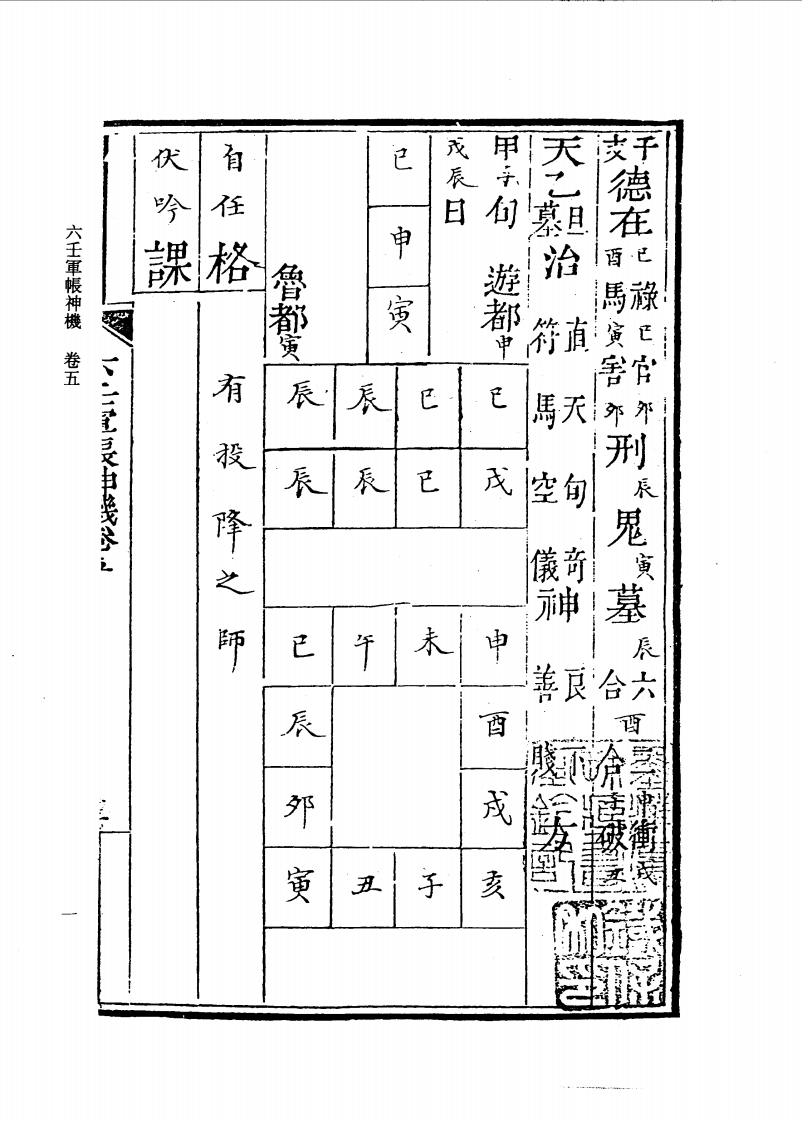 干支德在巳酉祿巳馬寅官卯害卯刑辰鬼寅墓辰六合酉
衝戌破丑
天乙旦墓治
直符天馬旬空奇儀神
甲子旬
戊辰日
遊都申
巳申寅
魯都寅
巳巳辰辰
戊巳辰辰
申未午巳
酉辰
戌卯
亥子丑寅
自任格
有投降之師
伏吟課
六壬軍帳神機卷五
六壬軍帳神機 卷五
一